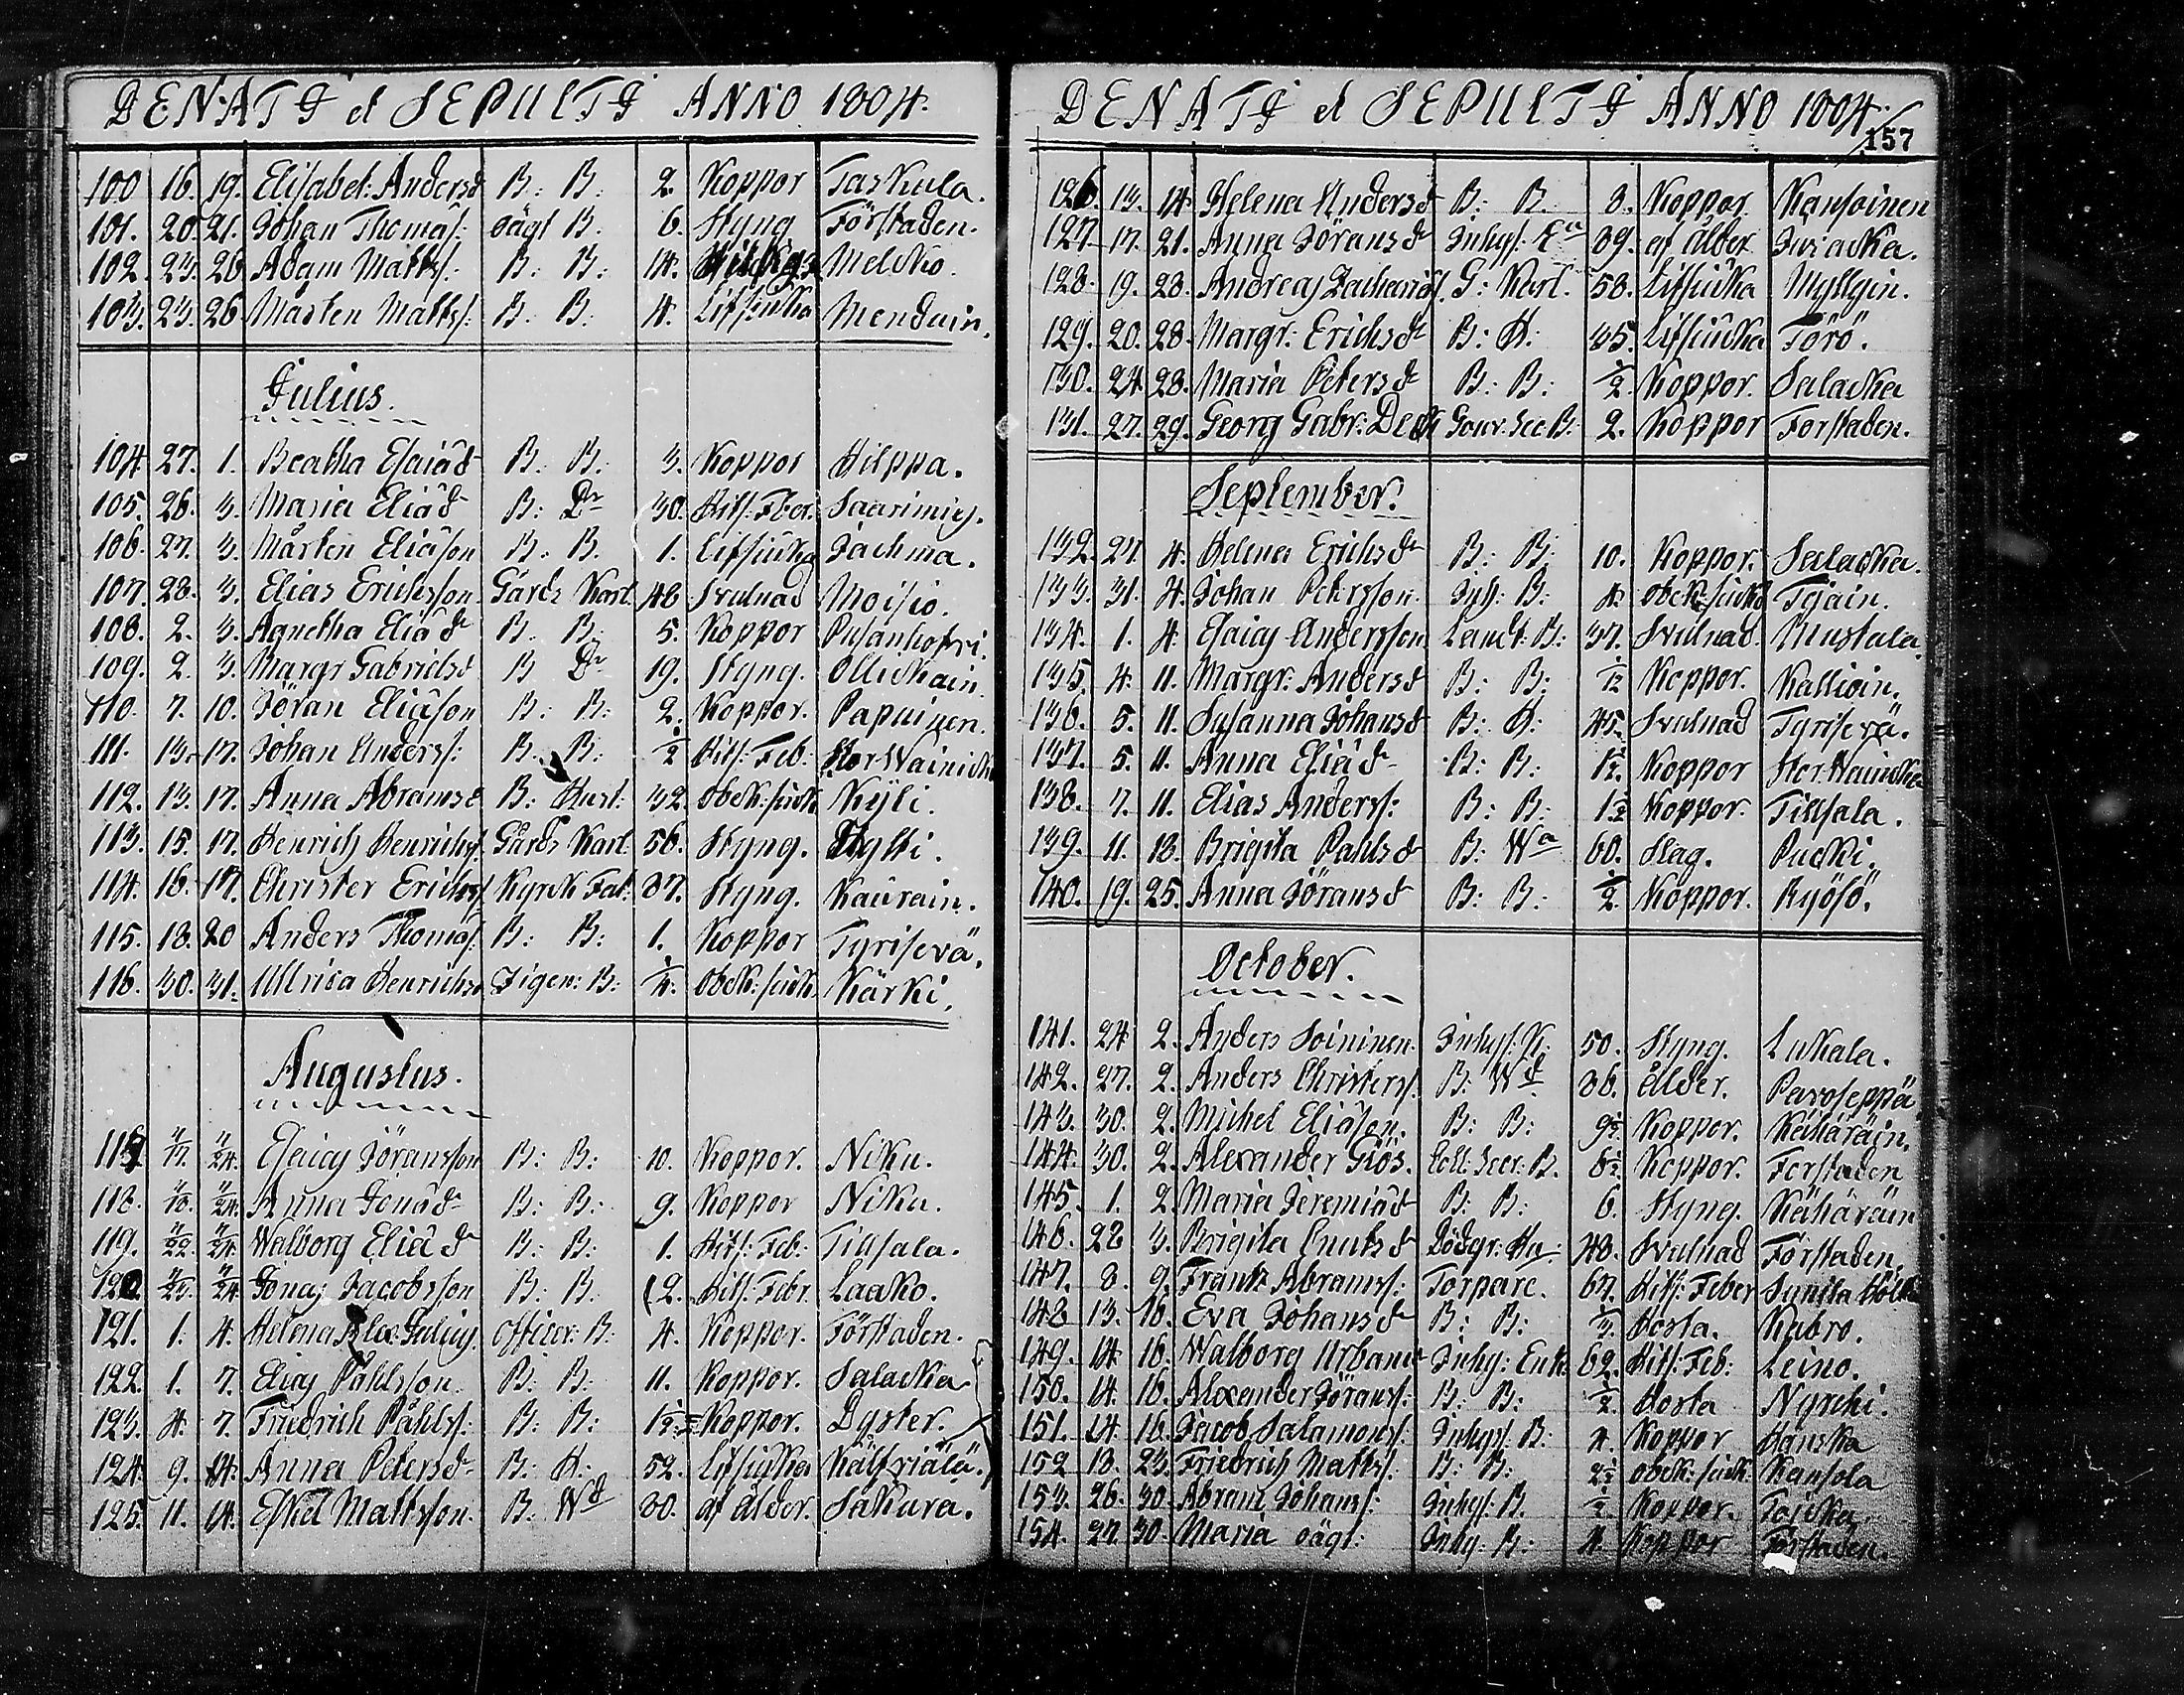 DENATI et SEPULTI ANNO 1804.
100 16. 19. Elisabet: Andersd B: B: 2. Koppor Taskula.
101. 20. 21. Johan Thomas: oägt B. 6. Styng Förstaden.
102. 23. 26 Adam Matts: B: B: 14. Melcko.
103. 23. 26 Mårten Mattss: B: B: 4. Lifsiucka Menduin.
Julius.
104 27. 1. Beatha Esaiäd B: B: 3. Koppor Hilppa.
105. 26. 3. Maria Eliäd B: Dr 30. Hits: Fber: Saarimies.
106. 27. 3. Mårten Eliäson B: B. 1. Lifsiucka Jachma.
107. 28. 3. Elias Erichsson Gårds Karl 48 Svulnad Moisio.
108. 2. 3. Agnetha Eliäd B. B. 5. Koppor Pusanhofvi.
109. 2. 3. Margr Gabrielsd B Dr 19. Styng. Ollickain.
110. 7. 10. Jöran Eliäson B: B: 2. Koppor. Papuinen.
111. 13. 17. Johan Anderss: B: B: ½ Hits: Feb: Stor Wainicka
112. 13. 17. Anna Abramsd B: Hust: 32 obek: siuck Kyli.
113. 15. 17. Henrich Henrichs Gårds Karl 56. Styng. Hytti.
114. 16. 17. Christer Erichs Kyrck Fat: 37. Styng. Kaurain.
115. 18. 20 Anders Thomas: B: B: 1. Koppor Tyrisevä.
116. 30. 31. Ullrica Henrichsd Zigen: B: ¼. Obek: siuck Kärki.
Augustus.
117 7/17. 7/24. Esaias Jöransson B: B: 10. Koppor. Niku.
118. 7/18. 7/24. Anna Jonäd B: B: 9. Koppor Niku.
119. 7/22. 7/24. Walborg Eliäd B: B: 1. Hits: Feb: Tillsala.
120 7/23. 7/24 Jonas Jacobsson B: B: 2. Hits: Febr. Laako.
121. 1. 4. Helena Alex: Julius Officer: B: 4. Koppor. Förstaden.
122. 1. 7. Elias Påhlsson B: B: 11. Koppor. Salacka
123. 4. 7. Friedrich Påhls: B: B: 1½ Koppor. Dyster.
124. 9. 14. Anna Petersd B: H: 52. Lifsiucka Kälfviälä.
125. 11. 14. Eskel Mattsson. B: Wd 80. af ålder. Sakura.
DENATI et SEPULTI ANNO 1804.
157
126. 13. 14. Helena Andersd B: B. 8. Koppor. Kansoinen
127 17. 21. Anna Göransd Inhys: Ea 89. af ålder Iviacka.
128. 19. 28. Andreas Zacharias G: Karl. 58. Lifsiucka Myllyin.
129. 20. 28. Margr: Erichsd B: H: 35. Lifsiucka Törö.
130. 24 28. Maria Petersd B: B: ½. Koppor. Salacka
131. 27. 29. Georg Gabr: Deck Gouv: Sec B: 2. Koppor Forstaden.
September.
132. 27 4. Helena Erichsd B: B: 10. Koppor. Salacka.
133. 31. 4. Johan Petersson Inh: B: 4. obek: siuck Tijain.
134. 1. 4 Esaias Andersson Landt: B: 37. Svulnad Mustala.
135. 4. 11. Margr: Andersd B: B: 1/12 Koppor. Kallioin.
136. 5. 11. Susanna Johansd B: H: 45. Svulnad Tyrisevä.
137. 5. 11. Anna Eliäd B: B: 1½. Koppor Stor Wainicka
138. 7. 11. Elias Anderss: B: B: 1½ Koppor. Tillsala.
139. 11. 18. Brigita Pahlsd B: Wa 60. Slag. Pucki.
140. 19. 25. Anna Jöransd B: B: ½. Koppor. Ryösö.
October.
141. 24 2. Anders Soininen Inhys: K: 50. Styng. Lukala.
142. 27. 2. Anders Christerss. B: Wd 86. ålder. Pavoseppä
143. 30. 2. Michel Eliäson. B: B: 9½. Koppor. Kähäräin.
144. 30. 2. Alexander Giös. Coll: Secr: B. 6½ Koppor. Forstaden
145. 1. 2. Maria Jeremiäd B: B: 6. Styng. Kähäräin
146. 28 3. Brigita Cnutsd Dödgr: Hu: 48. Svulnad Förstaden.
147. 8. 9. Frantz Abramss: Torpare. 67. Hits: Feber Sunila
148 13. 16. Eva Johansd B: B: ⅓. Hosta. Kabro.
149. 14 16. Walborg Urbansd Inhys: Enk: 62. Hits: Feb: Leino.
150. 14. 16. Alexander Jöranss: B: B: ½. Hosta Nyrchi.
151. 14 16. Jacob Salamonss: Inhys: B: 4. Koppor Hanska
152 18. 23. Friedrich Matts: B: B: 2½ obek: siuck. Kansola
153. 26. 30. Abram Johanss: Inhys: B. ½. Koppor.
154. 27. 30. Maria oägt: Inhys: B: 4. Koppor Förstaden.